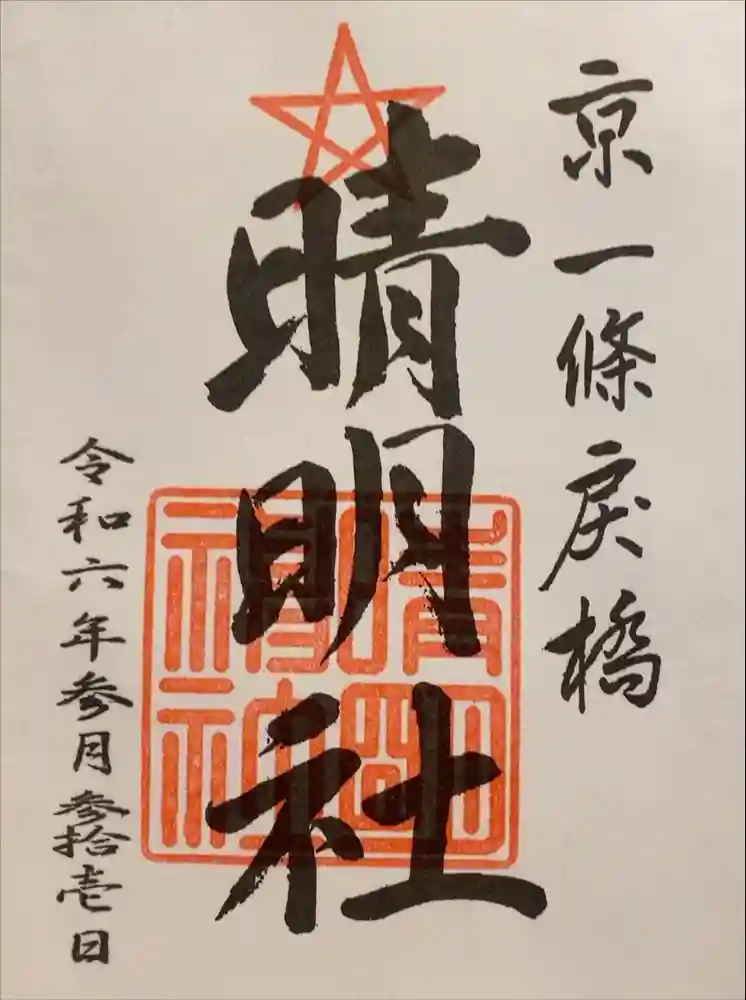 京一條戻橋
晴明社
晴明神社
令和六年参月参拾壱日